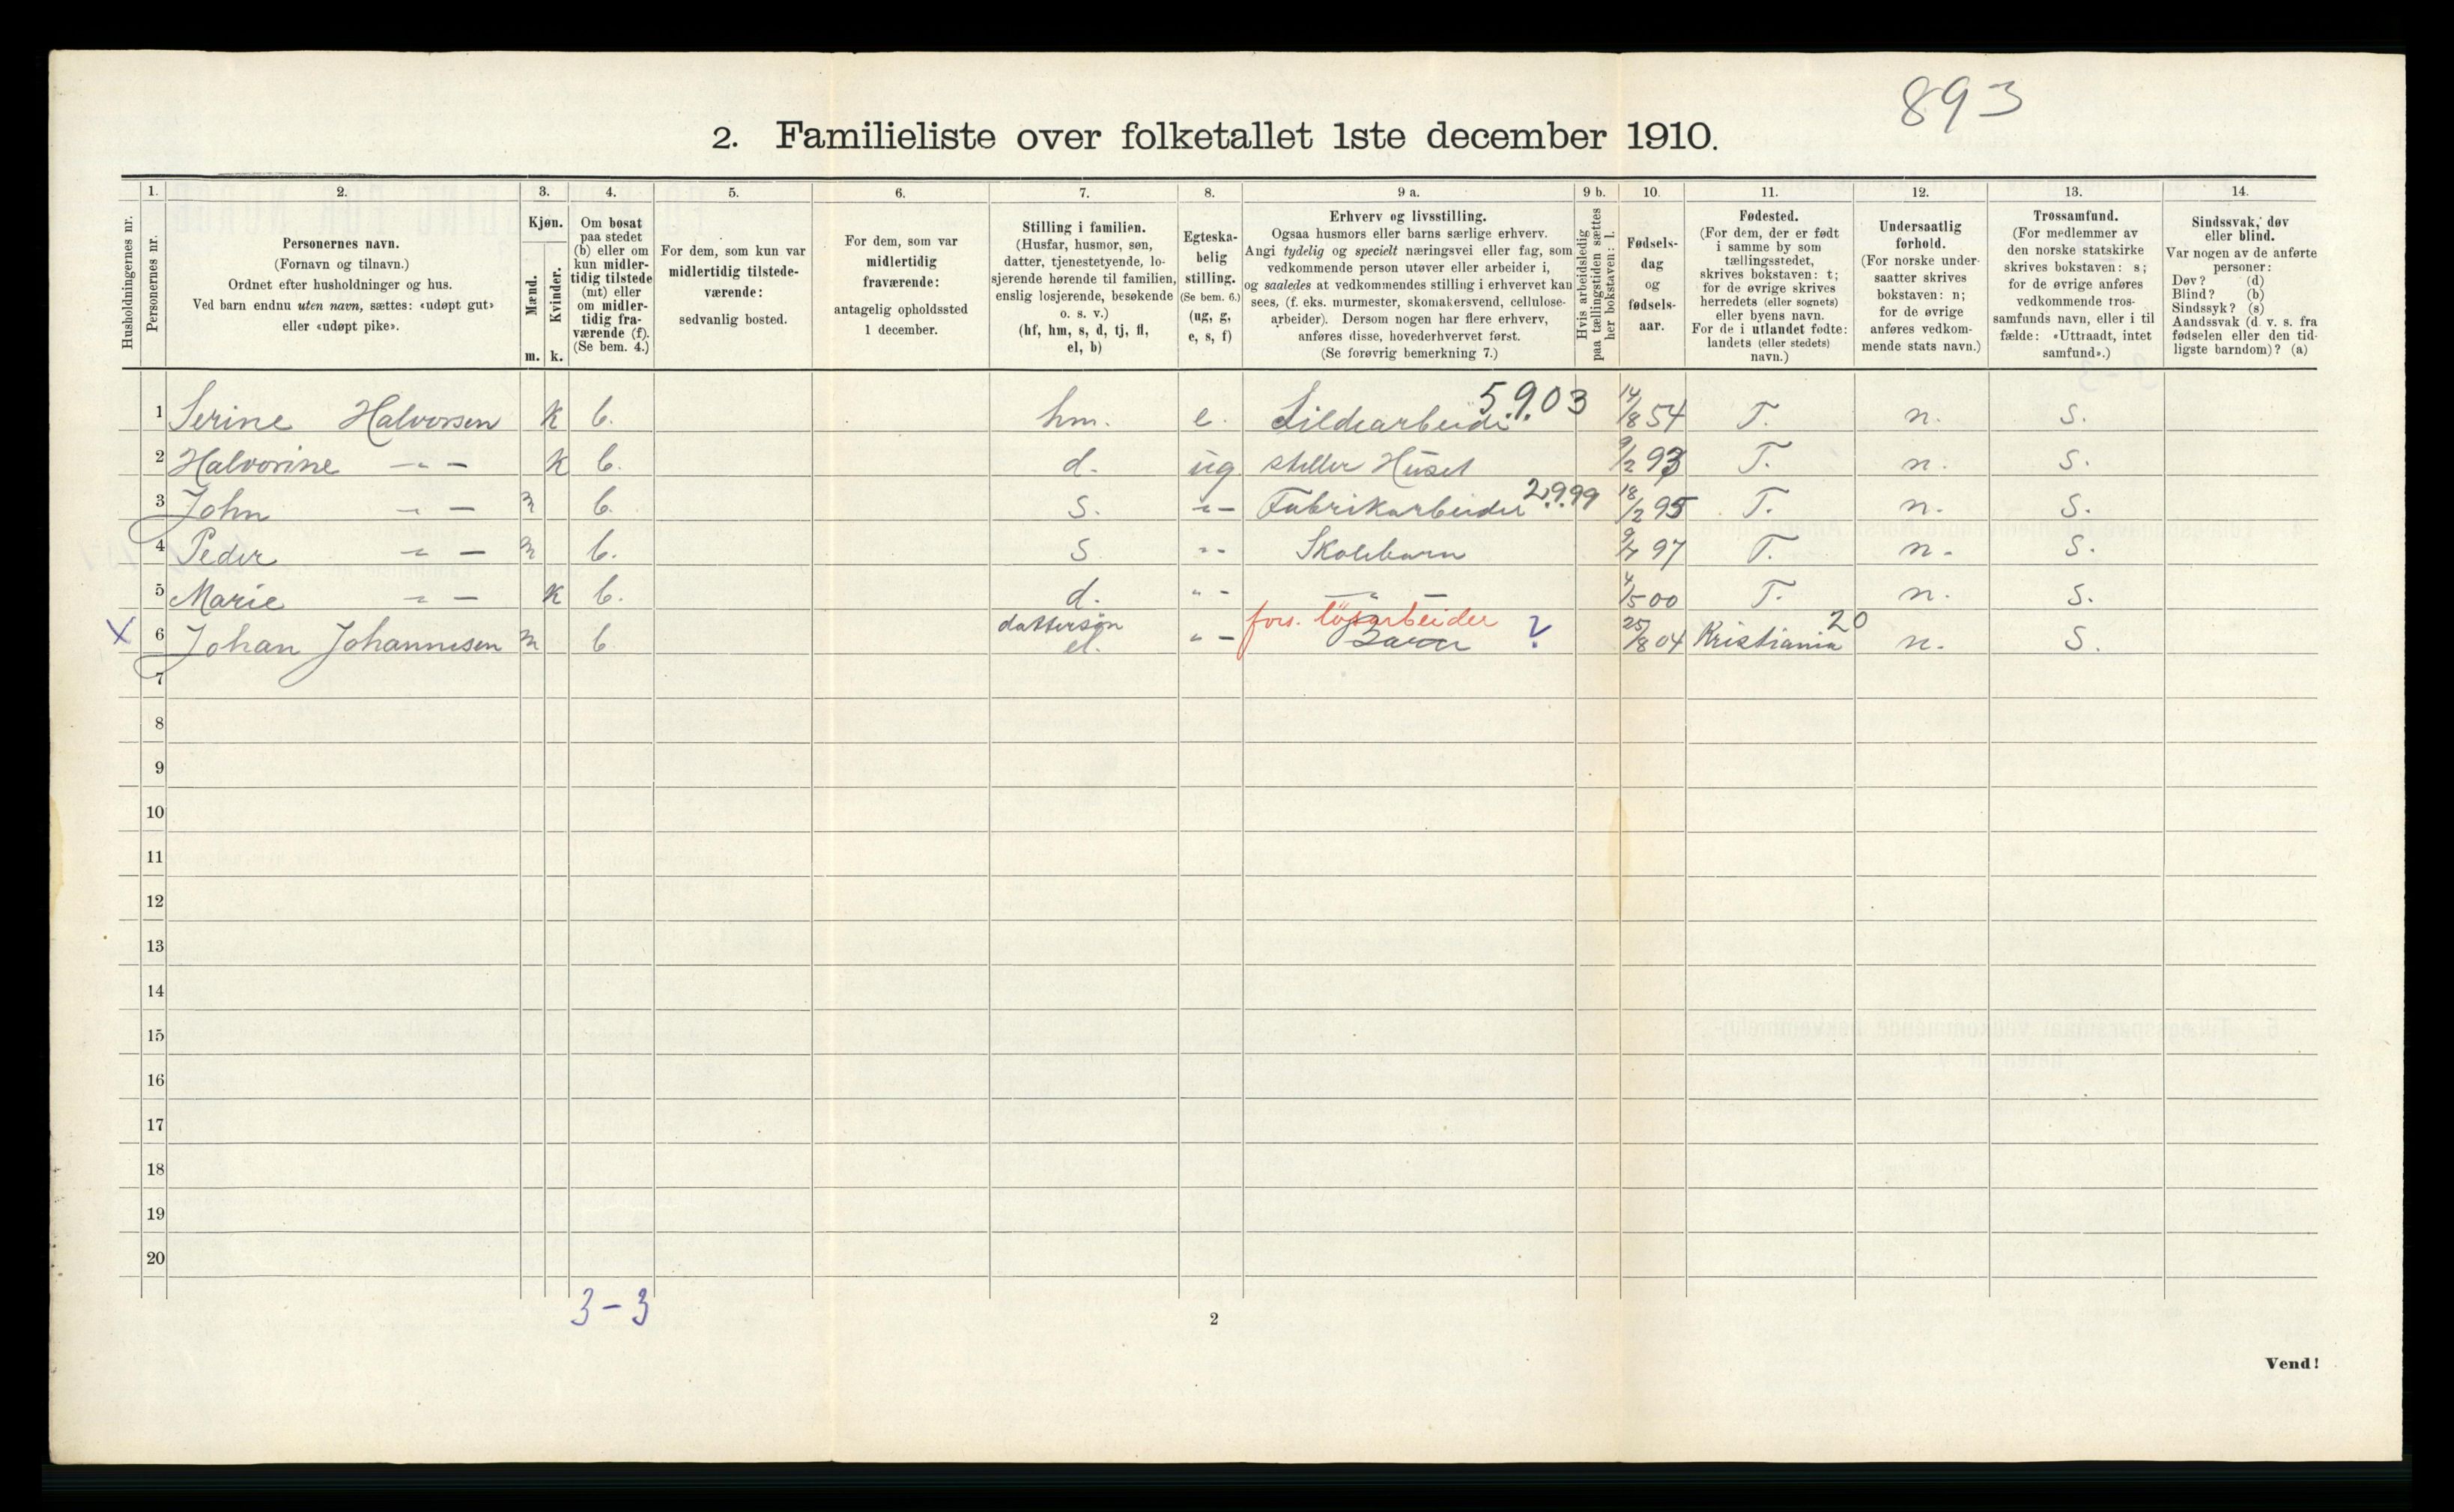 893
2. Familieliste over folketallet 1ste december 1910.
Husholdningernes nr.
1. Personernes nr.
2. Personernes navn.
(Fornavn og tilnavn.)
Ordnet efter husholdninger og hus.
Ved barn endnu uten navn, sættes: «udøpt gut»
eller «udøpt pike».
3. Kjøn.
Mænd. m.
Kvinder. k.
4. Om bosat
paa stedet
(b) eller om
kun midler-
tidig tilstede
(mt) eller
om midler-
tidig fra-
værende (f).
(Se bem. 4.)
5. For dem, som kun var
midlertidig tilstede-
værende:
sedvanlig bosted.
6. For dem, som var
midlertidig
fraværende:
antagelig opholdssted
1 december.
7. Stilling i familien.
(Husfar, husmor, søn,
datter, tjenestetyende, lo-
sjerende hørende til familien,
enslig losjerende, besøkende
o. s. v.)
(hf, hm, s, d, tj, fl,
el, b)
8. Egteska-
belig
stilling.
(Se bem. 6.)
(ug, g,
e, s, f)
9 a. Erhverv og livsstilling.
Ogsaa husmors eller barns særlige erhverv.
Angi tydelig og specielt næringsvei eller fag, som
vedkommende person utøver eller arbeider i,
og saaledes at vedkommendes stilling i erhvervet kan
sees, (f. eks. murmester, skomakersvend, cellulose-
arbeider). Dersom nogen har flere erhverv,
anføres disse, hovederhvervet først.
(Se forøvrig bemerkning 7.)
9 b. Hvis arbeidsledig
paa tællingstiden sættes
her bokstaven: l.
10. Fødsels-
dag
og
fødsels-
aar.
11. Fødested.
(For dem, der er født
i samme by som
tællingsstedet,
skrives bokstaven: t;
for de øvrige skrives
herredets (eller sognets)
eller byens navn.
For de i utlandet fødte:
landets (eller stedets)
navn.)
12. Undersaatlig
forhold.
(For norske under-
saatter skrives
bokstaven: n;
for de øvrige
anføres vedkom-
mende stats navn.)
13. Trossamfund.
(For medlemmer av
den norske statskirke
skrives bokstaven: s;
for de øvrige anføres
vedkommende tros-
samfunds navn, eller i til
fælde: «Uttraadt, intet
samfund».)
14. Sindssvak, døv
eller blind.
Var nogen av de anførte
personer:
Døv? (d)
Blind? (b)
Sindssyk? (s)
Aandssvak (d. v. s. fra
fødselen eller den tid-
ligste barndom)? (a)
1 Serine Halvorsen K b. hm. e. Sildearbeider 5.9.03 14/8 54 T. n. S.
2 Halvorine -"- K b. d. ug. steller Huset 9/2 93 T. n. S.
3 John -"- m b. S. -"- Fabrikarbeider 2.9.99 18/2 95 T. n. S.
4 Peder -"- m b. S -"- Skolebarn 97 T. n. S.
5 Marie -"- K b. d. -"- -"- 4/5 00 T. n. S.
X 6 Johan Johannesen m b dattersøn el. -"- fors. løsarbeider Barn ? 25/8 04 Kristiania 20 n. S.
7
8
9
10
11
12
13
14
15
16
17
18
19
20
3-3
2
Vend!